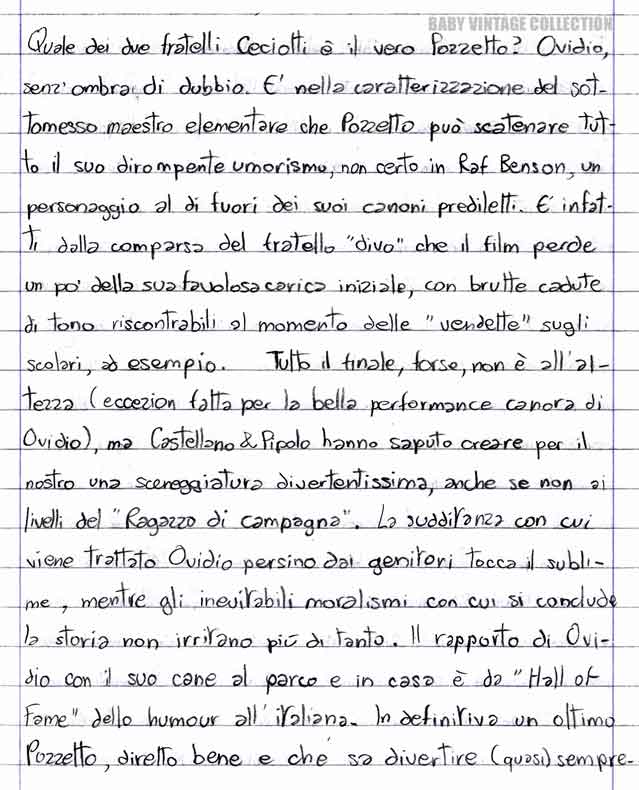 BABY VINTAGE COLLECTION
Quale dei due fratelli Ceciotti è il vero Pozzetto? Ovidio,
senz'ombra di dubbio. E' nella caratterizzazione del sot-
tomesso maestro elementare che Pozzetto può scatenare tut-
to il suo dirompente umorismo, non certo in Raf Benson, un
personaggio al di fuori dei suoi canoni prediletti. E' infat-
ti dalla comparsa del fratello "divo" che il film perde
un po' della sua favolosa carica iniziale, con brutte cadute
di tono riscontrabili al momento delle "vendette" sugli
scolari, ad esempio. Tutto il finale, forse, non è all'al-
tezza (eccezion fatta per la bella performance canora di
Ovidio), ma Castellano & Pipolo hanno saputo creare per il
nostro una sceneggiatura divertentissima, anche se non ai
livelli del "Ragazzo di campagna". La sudditanza con cui
viene trattato Ovidio persino dai genitori tocca il subli-
me, mentre gli inevitabili moralismi con cui si conclude
la storia non irritano più di tanto. Il rapporto di Ovi-
dio con il suo cane al parco e in casa è da "Hall of
Fame" dello humour all'italiana. In definitiva un ottimo
Pozzetto, diretto bene e che sa divertire (quasi) sempre.